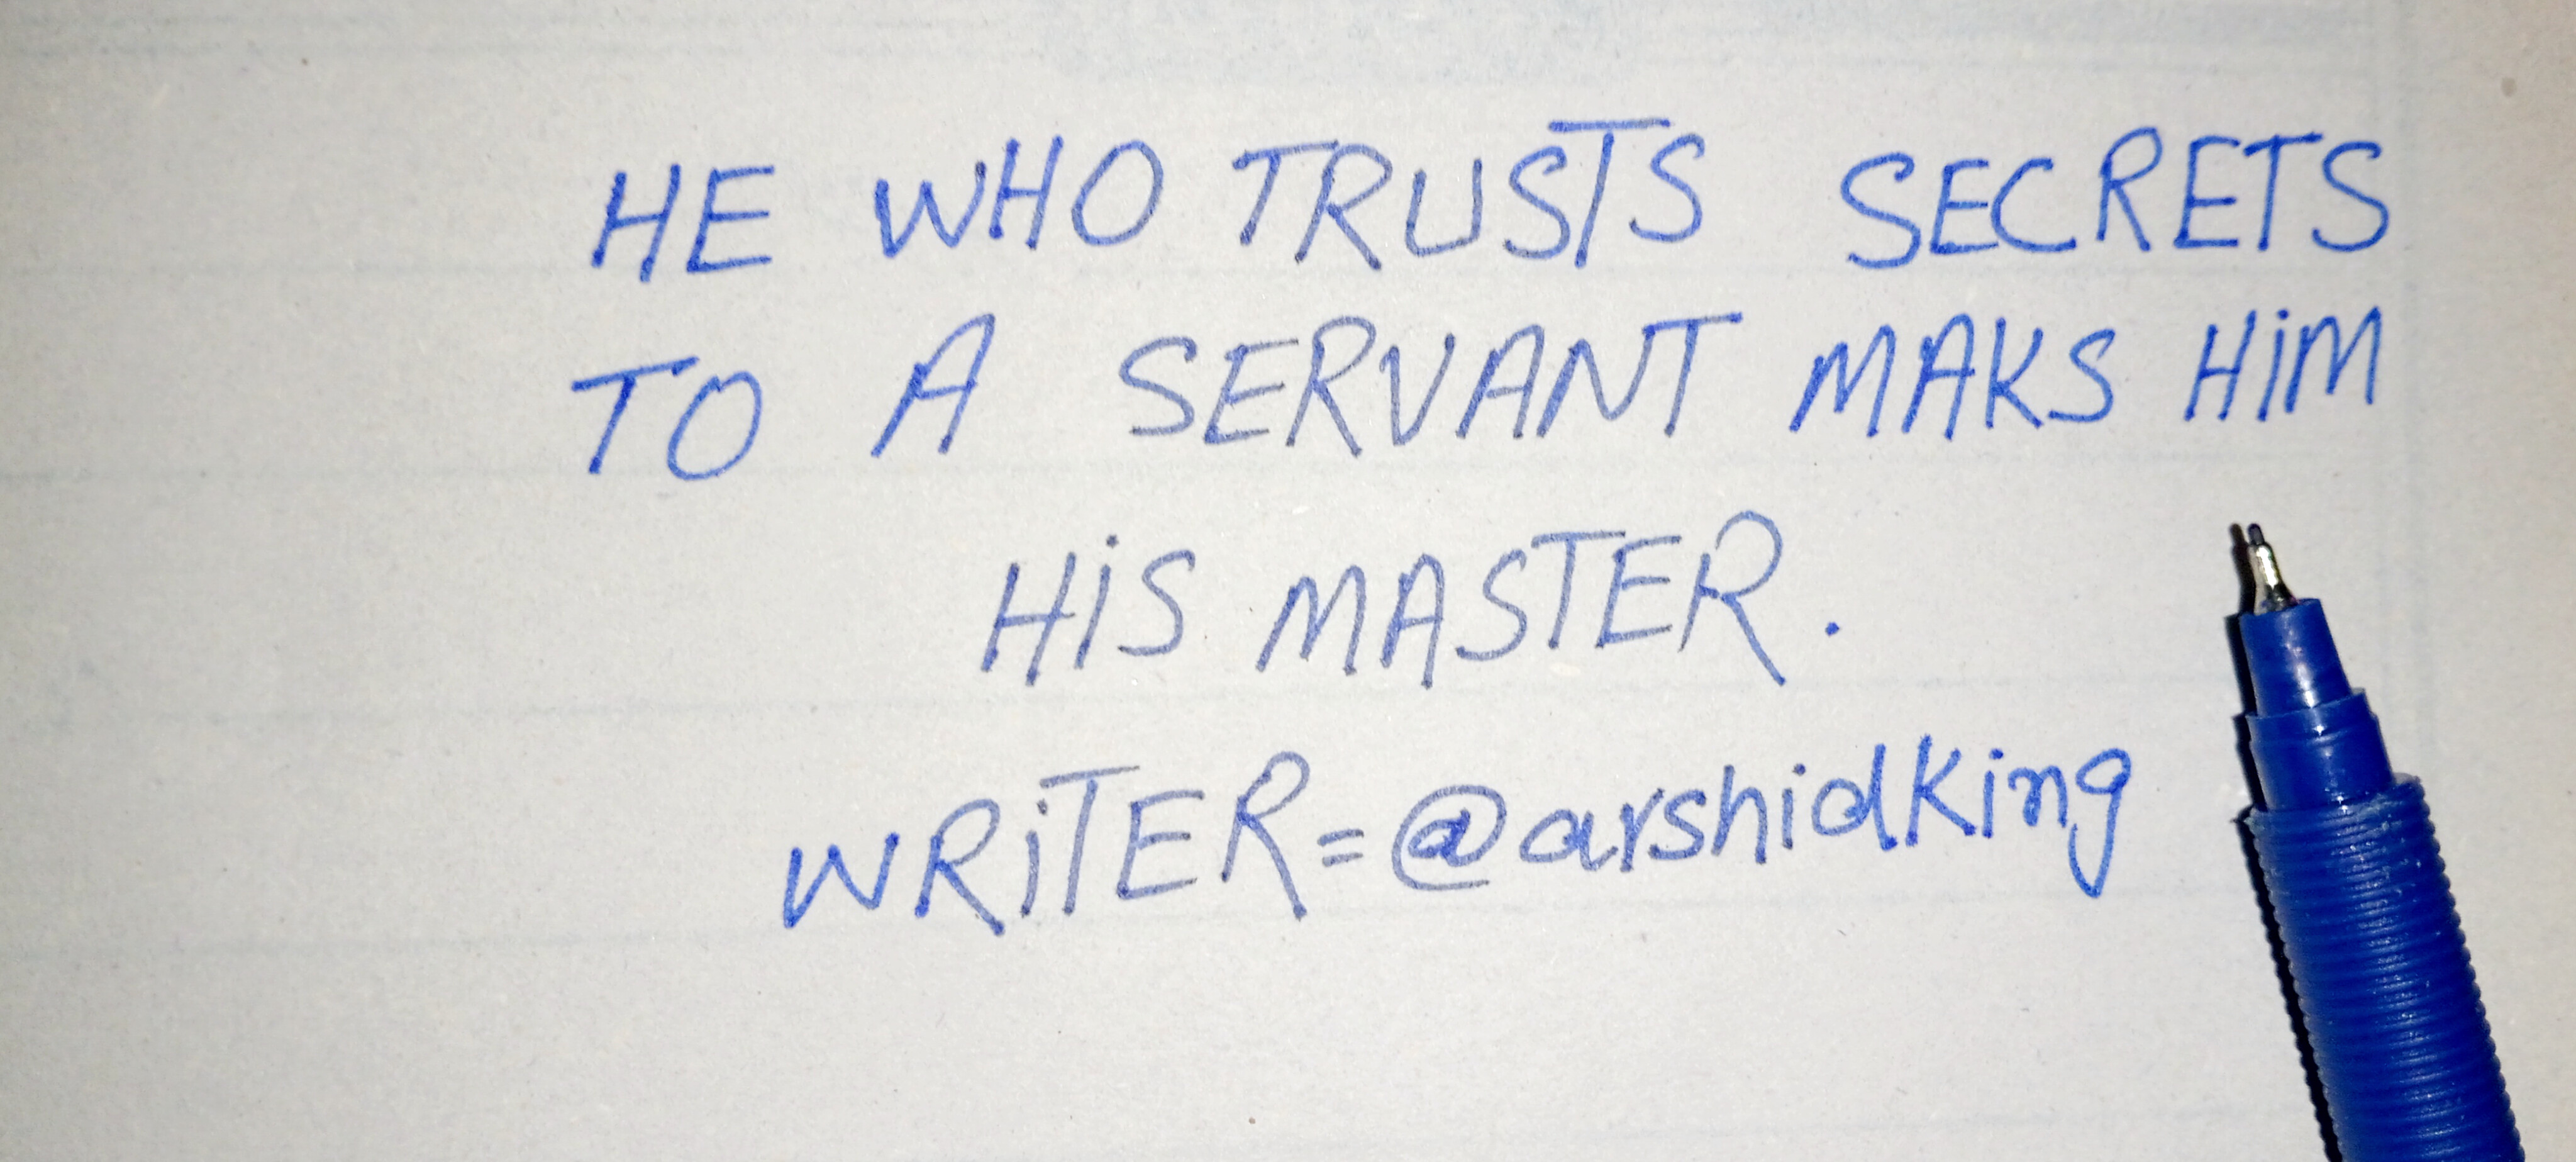 HE WHO TRUSTS SECRETS
TO A SERVANT MAKS HiM
HiS MASTER.
WRiTER=@arshidking